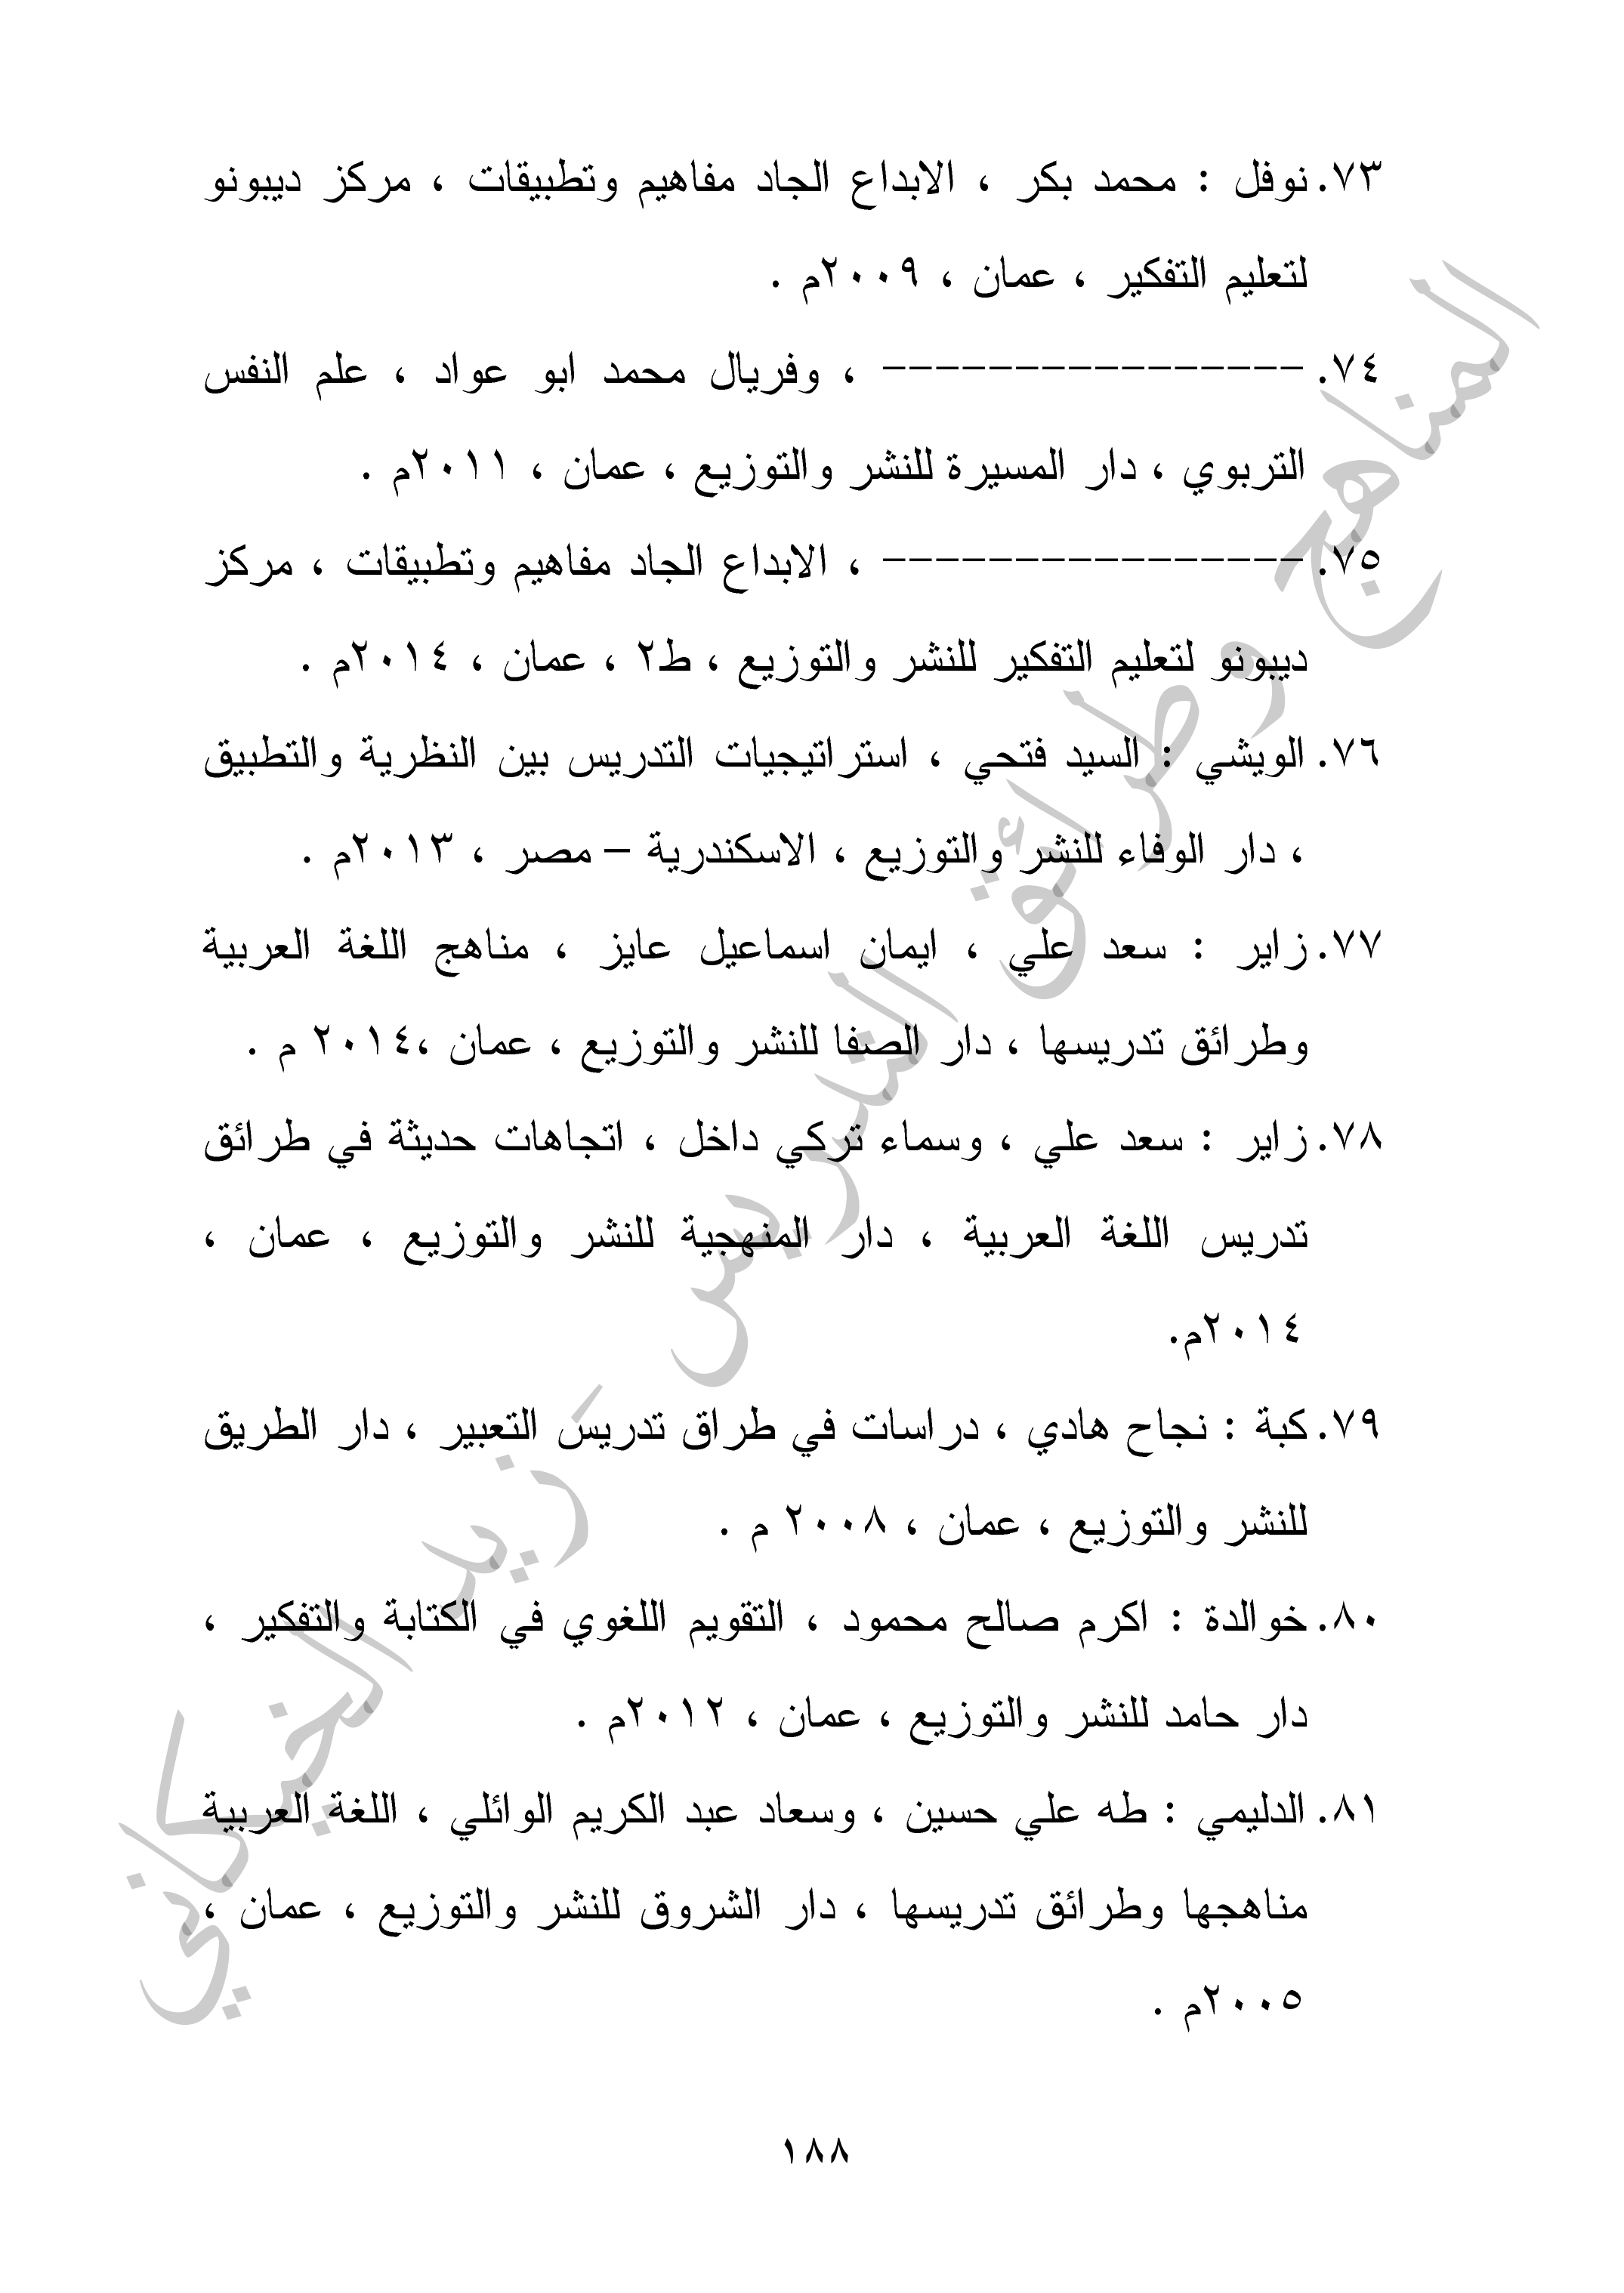 ٧٣. نوفل : محمد بكر ، الابداع الجاد مفاهيم وتطبيقات ، مركز ديبونو
لتعليم التفكير ، عمان ، ٢٠٠٩م .
٧٤. ---------------- ، وفريال محمد ابو عواد ، علم النفس
التربوي ، دار المسيرة للنشر والتوزيع ، عمان ، ٢٠١١م .
٧٥. ---------------- ، الابداع الجاد مفاهيم وتطبيقات ، مركز
ديبونو لتعليم التفكير للنشر والتوزيع ، ط٢ ، عمان ، ٢٠١٤م .
٧٦. الويشي : السيد فتحي ، استراتيجيات التدريس بين النظرية والتطبيق
، دار الوفاء للنشر والتوزيع ، الاسكندرية – مصر ، ٢٠١٣م .
٧٧. زاير : سعد علي ، ايمان اسماعيل عايز ، مناهج اللغة العربية
وطرائق تدريسها ، دار الصفا للنشر والتوزيع ، عمان ،٢٠١٤ م .
٧٨. زاير : سعد علي ، وسماء تركي داخل ، اتجاهات حديثة في طرائق
تدريس اللغة العربية ، دار المنهجية للنشر والتوزيع ، عمان ،
٢٠١٤م.
٧٩. كبة : نجاح هادي ، دراسات في طراق تدريس التعبير ، دار الطريق
للنشر والتوزيع ، عمان ، ٢٠٠٨ م .
٨٠. خوالدة : اكرم صالح محمود ، التقويم اللغوي في الكتابة والتفكير ،
دار حامد للنشر والتوزيع ، عمان ، ٢٠١٢م .
٨١. الدليمي : طه علي حسين ، وسعاد عبد الكريم الوائلي ، اللغة العربية
مناهجها وطرائق تدريسها ، دار الشروق للنشر والتوزيع ، عمان ،
٢٠٠٥م .
١٨٨
المناهج وطرائق التدريس - زيد الخيكاني